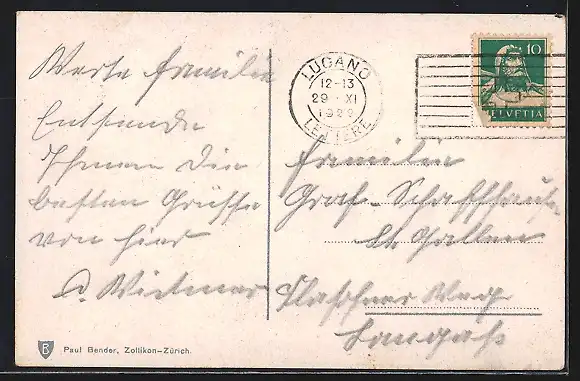 Werte Familie
Entsende
Ihnen die
besten Grüsse
von hier
A. Widmer
LUGANO
12-13
29 XI
LETTERE
10
HELVETIA
Familie
Graf-Schaffhauser
St. Gallen
Weg
Langgaß
B
Paul Bender, Zollikon-Zürich.